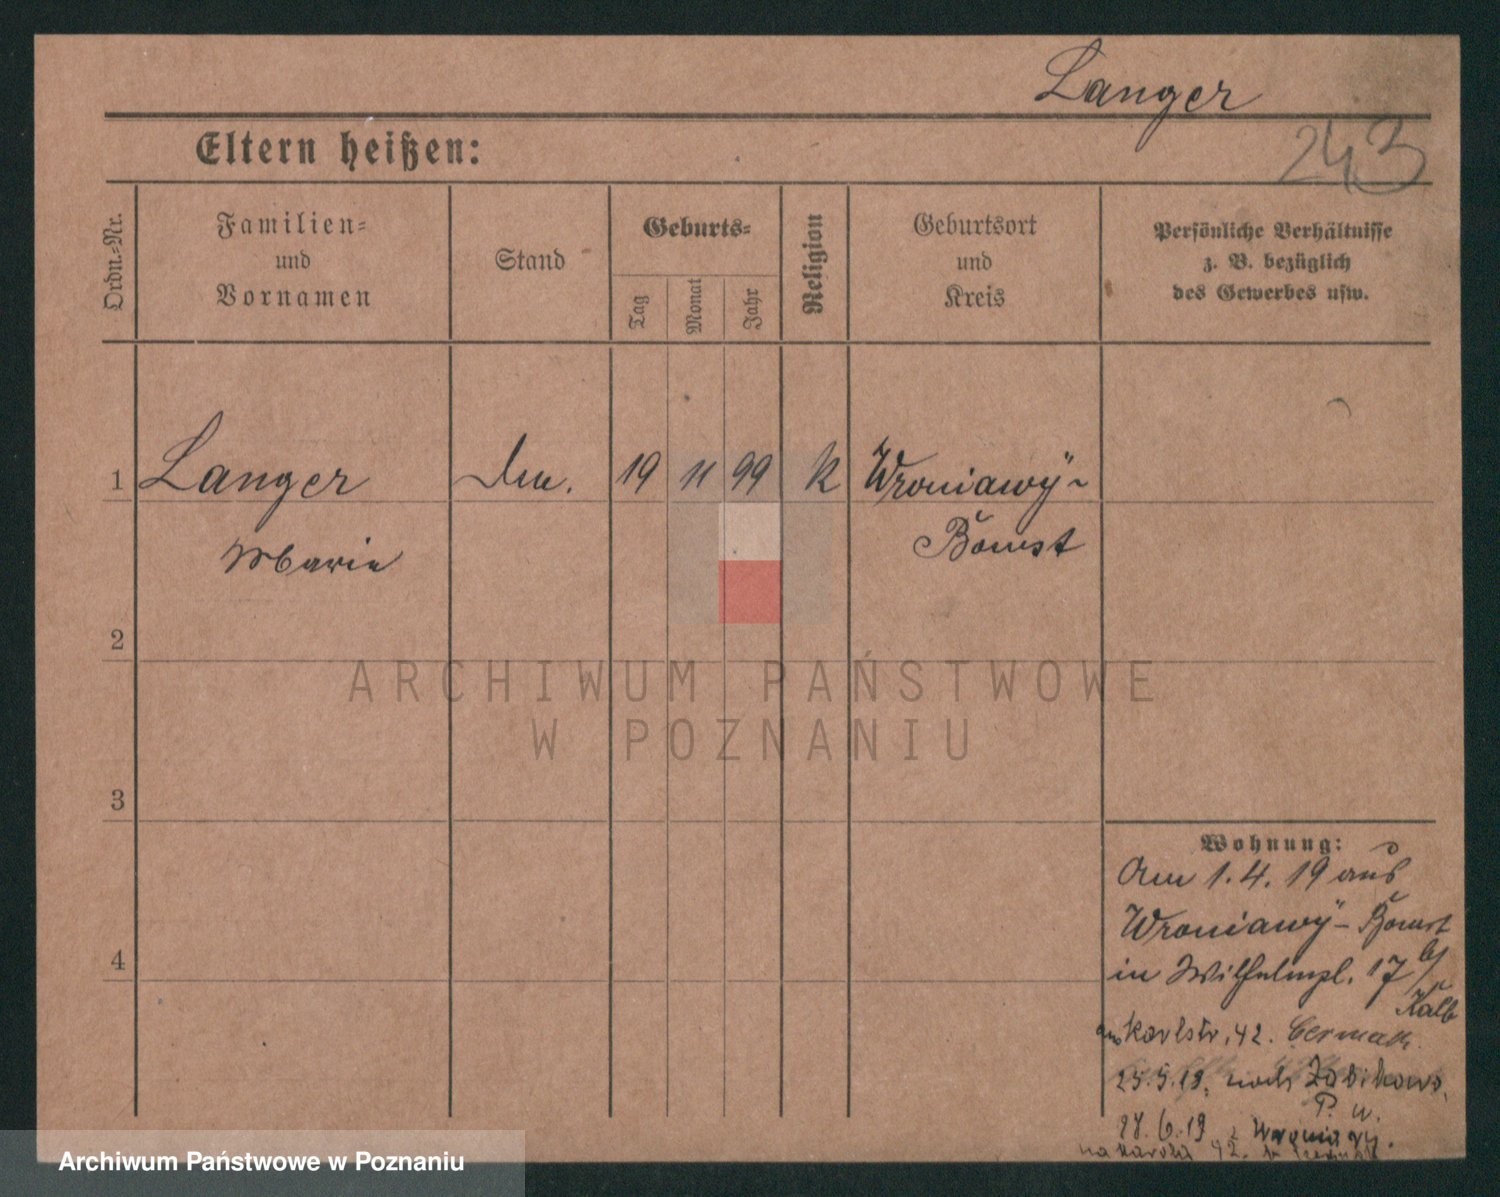 Langer
243
Eltern heißen:
Ordn.-Nr.
Familien-
und
Vornamen
Stand
Geburts-
Tag
Monat
Jahr
Religion
Geburtsort
und
Kreis
Persönliche Verhältnisse
z. B. bezüglich
des Gewerbes usw.
1 Langer 19 11 99 K Wroniawÿ-
Marie Bomst
2
3
4
Wohnung:
Am 1. 4. 19 aus
Wroniawÿ - Bomst
in Wilhelmpl. 17 b/
Kalb
Karlstr. 42.
25.5.19. nach Zabikowo,
P. w.
27. 6. 19 z Wroniawy.
na Karola 42.
ARCHIWUM PAŃSTWOWE
W POZNANIU
Archiwum Państwowe w Poznaniu